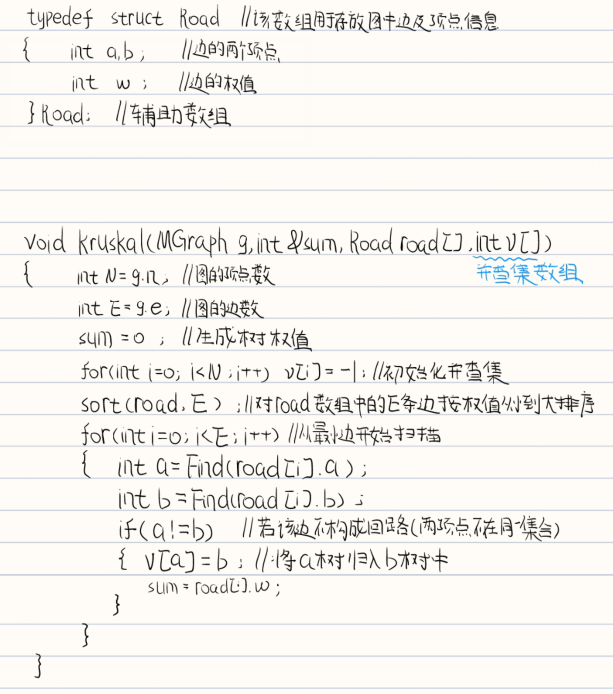 typedef struct Road //该数组用于存放图中边及顶点信息
{ int a,b; //边的两个顶点
int w; //边的权值
}Road; //辅助数组
void kruskal(MGraph g,int &sum, Road road[],int v[])
{ int N=g.n; //图的顶点数
并查集数组
int E=g.e; //图的边数
sum=0; //生成树权值
for(int i=0; i<N; i++) v[i]=-1; //初始化并查集
sort(road,E); //对road数组中的E条边按权值从小到大排序
for(int i=0; i<E; i++) //从最小边开始扫描
{ int a=Find(road[i].a);
int b=Find(road[i].b);
if(a!=b) //若该边不构成回路(两顶点不在同一集合)
{ v[a]=b; //将a树归入b树中
sum=road[i].w;
}
}
}